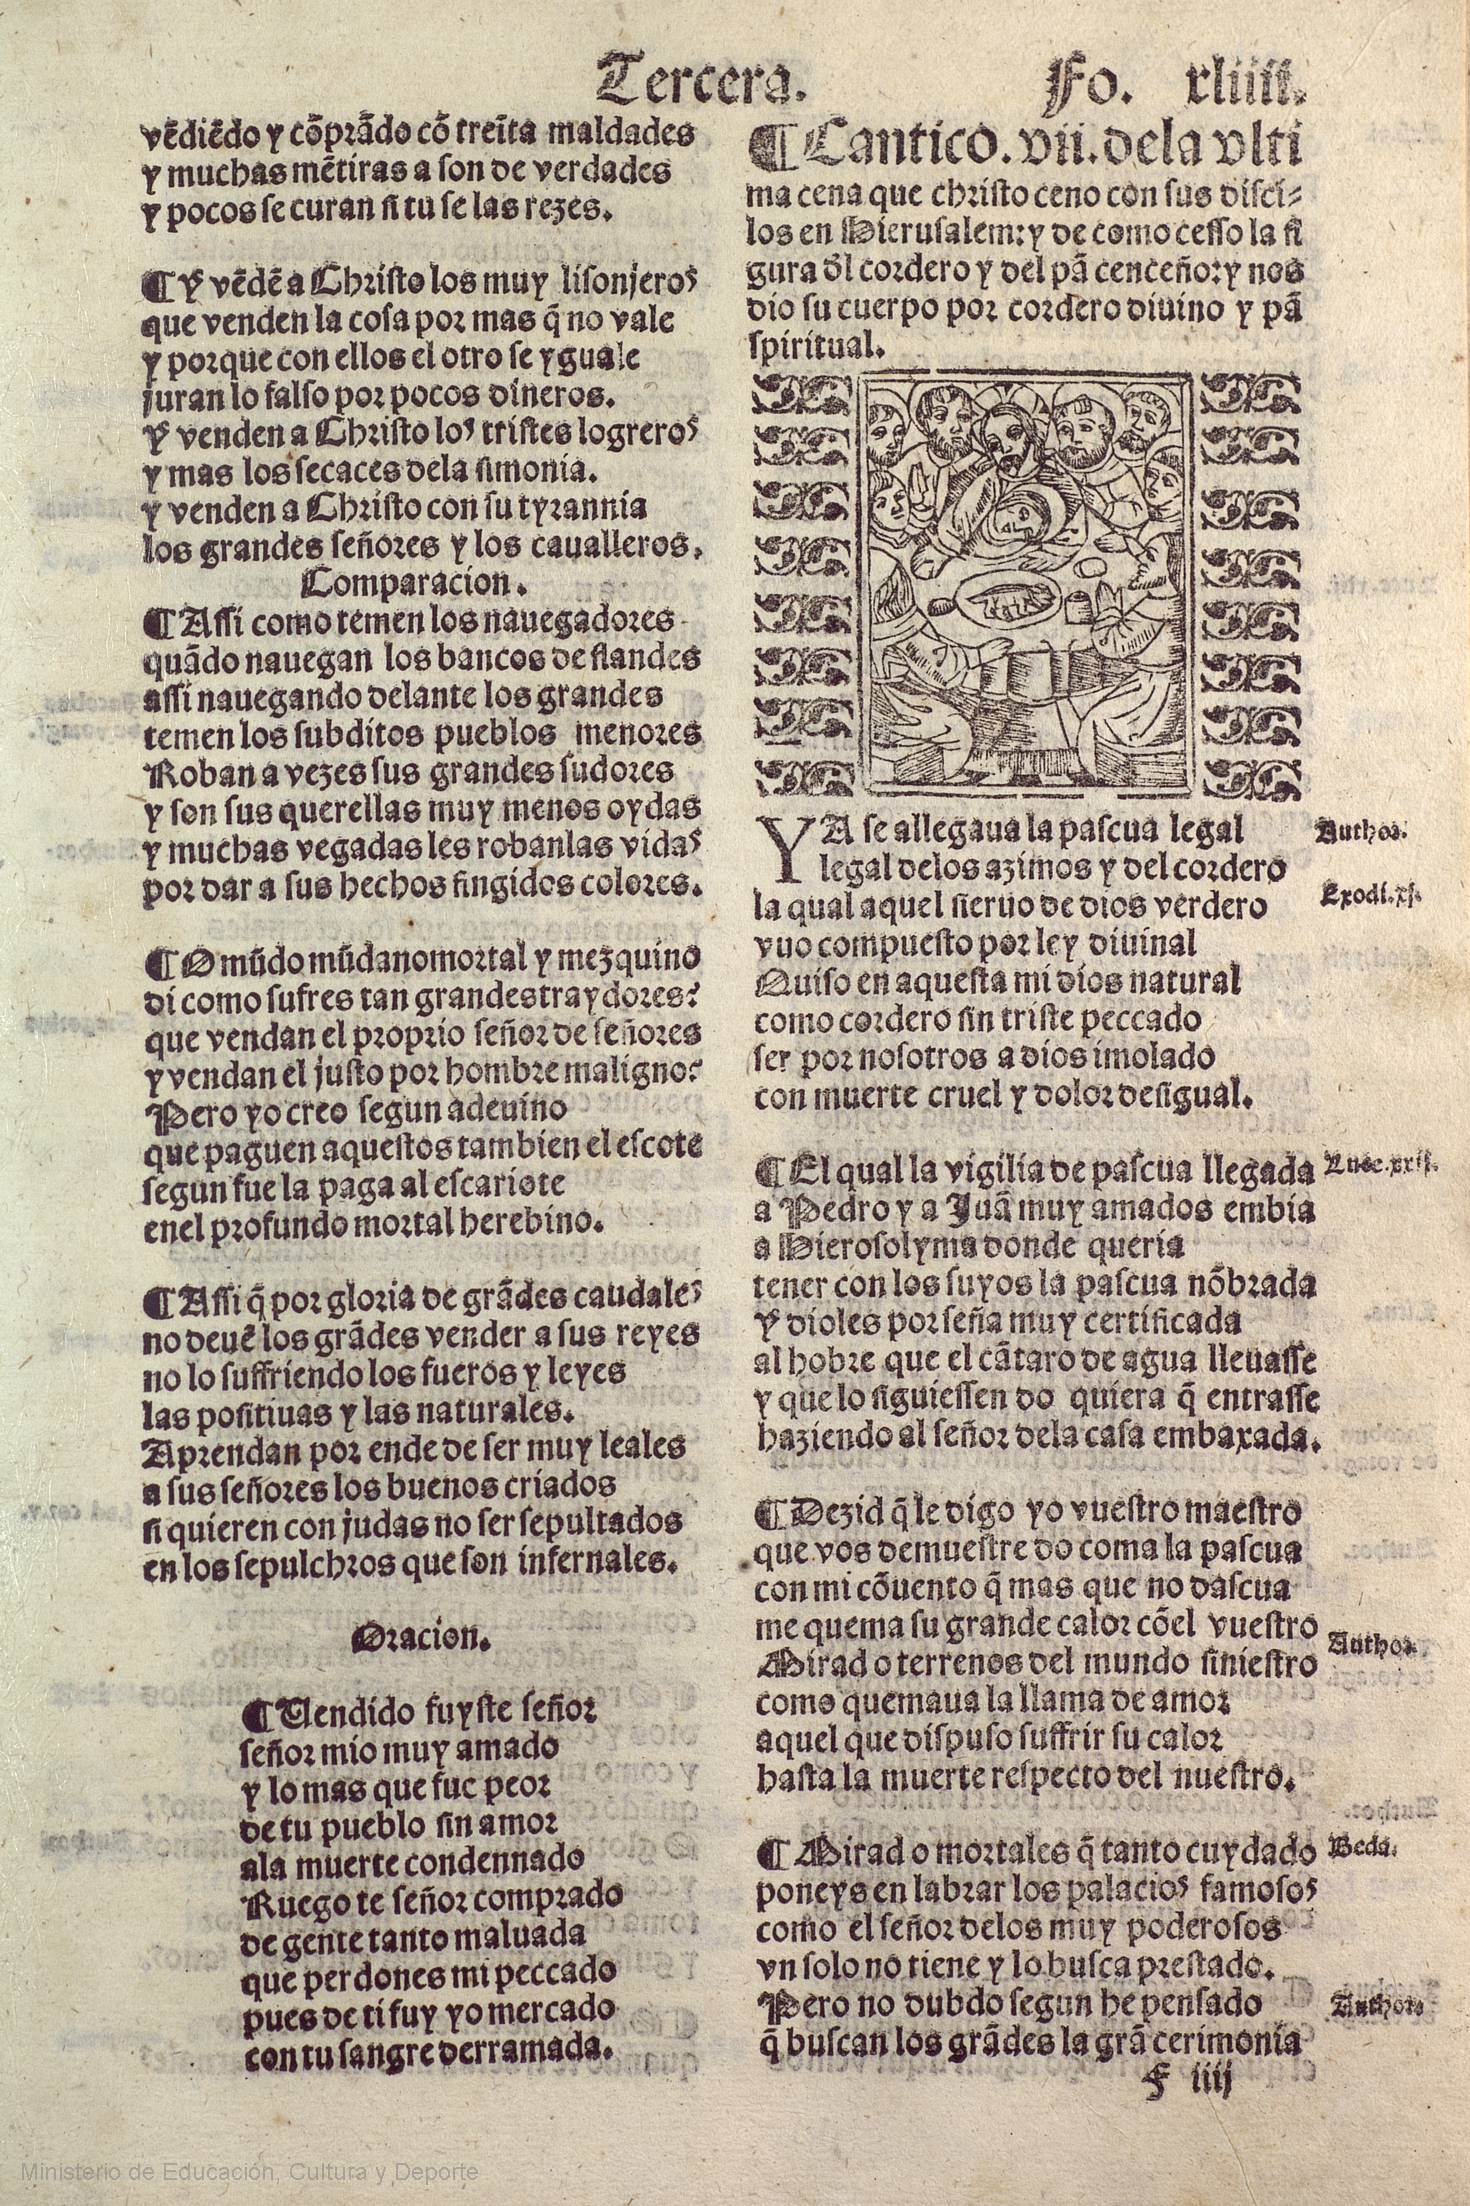 Tercera. Fo. xliiii.
vēdiēdo y cōprādo cō treīta maldades
y muchas mētiras a son de verdades
y pocos se curan si tu se las rezes.
¶ Y vēdē a Christo los muy lisonjeros
que venden la cosa por mas q̄ no vale
y porque con ellos el otro se yguale
juran lo falso por pocos dineros.
Y venden a Christo los tristes logreros
y mas los secaces dela simonia.
y venden a Christo con su tyrannia
los grandes señores y los caualleros.
Comparacion.
¶ Assi como temen los nauegadores
quādo nauegan los bancos de flandes
assi nauegando delante los grandes
temen los subditos pueblos menores
Roban a vezes sus grandes sudores
y son sus querellas muy menos oydas
y muchas vegadas les roban las vidas
por dar a sus hechos fingidos colores.
¶ O mūdo mūdano mortal y mezquino
di como sufres tan grandes traydores?
que vendan el proprio señor de señores
y vendan el justo por hombre maligno?
Pero yo creo segun adeuino
que paguen aquestos tambien el escote
segun fue la paga al escariote
enel profundo mortal herebino.
¶ Assi q̄ por gloria de grādes caudales
no deuē los grādes vender a sus reyes
no lo suffriendo los fueros y leyes
las positiuas y las naturales.
Aprendan por ende de ser muy leales
a sus señores los buenos criados
si quieren con judas no ser sepultados
en los sepulchros que son infernales.
Oracion.
¶ Uendido fuyste señor
señor mio muy amado
y lo mas que fue peor
de tu pueblo sin amor
ala muerte condennado
Ruego te señor comprado
de gente tanto maluada
que perdones mi peccado
pues de ti fuy yo mercado
con tu sangre derramada.
¶ Cantico. vii. dela vlti
ma cena que christo ceno con sus disci-
los en Hierusalem: y de como cesso la fi
gura dl cordero y del pā cenceño: y nos
dio su cuerpo por cordero diuino y pā
spiritual.
YA se allegaua la pascua legal
legal delos azimos y del cordero
la qual aquel sieruo de dios verdero
vuo compuesto por ley diuinal
Quiso en aquesta mi dios natural
como cordero sin triste peccado
ser por nosotros a dios imolado
con muerte cruel y dolor desigual.
Author.
Exodi. xj.
¶ El qual la vigilia de pascua llegada
a Pedro y a Juā muy amados embia
a Hierosolyma donde queria
tener con los suyos la pascua nōbrada
Y dioles por seña muy certificada
al hobre que el cātaro de agua lleuasse
y que lo siguiessen do quiera q̄ entrasse
haziendo al señor dela casa embaxada.
Luce. xxij.
¶ Dezid q̄ le digo yo vuestro maestro
que vos demuestre do coma la pascua
con mi cōuento q̄ mas que no dascua
me quema su grande calor cōel vuestro
Mirad o terrenos del mundo siniestro
como quemaua la llama de amor
aquel que dispuso suffrir su calor
hasta la muerte respecto del nuestro.
Author.
¶ Mirad o mortales q̄ tanto cuydado
poneys en labrar los palacios famosos
como el señor delos muy poderosos
vn solo no tiene y lo busca prestado.
Pero no dubdo segun he pensado
q̄ buscan los grādes la grā cerimonia
Beda.
Author.
F iiij
Ministerio de Educación, Cultura y Deporte